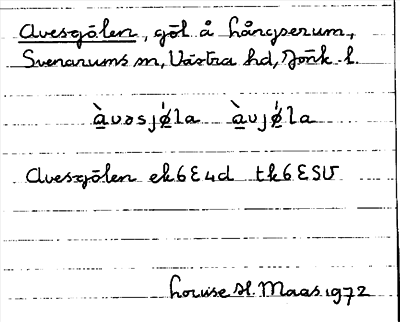 Avesgölen, göl å Långserum,
Svenarums sn, Västra hd, Jönk. l.
àvəsjǿla àvjǿla
Avesgölen ek 6E4d tk 6ESV
Louise H. Maas 1972